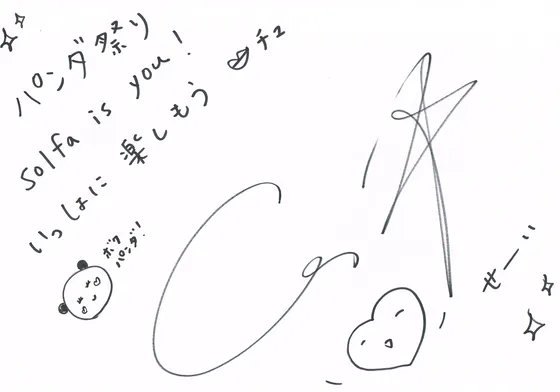 パンダ祭り
Solfa is you!
いっしょに楽しもう
チュ
ボク
パンダ!
せーじ